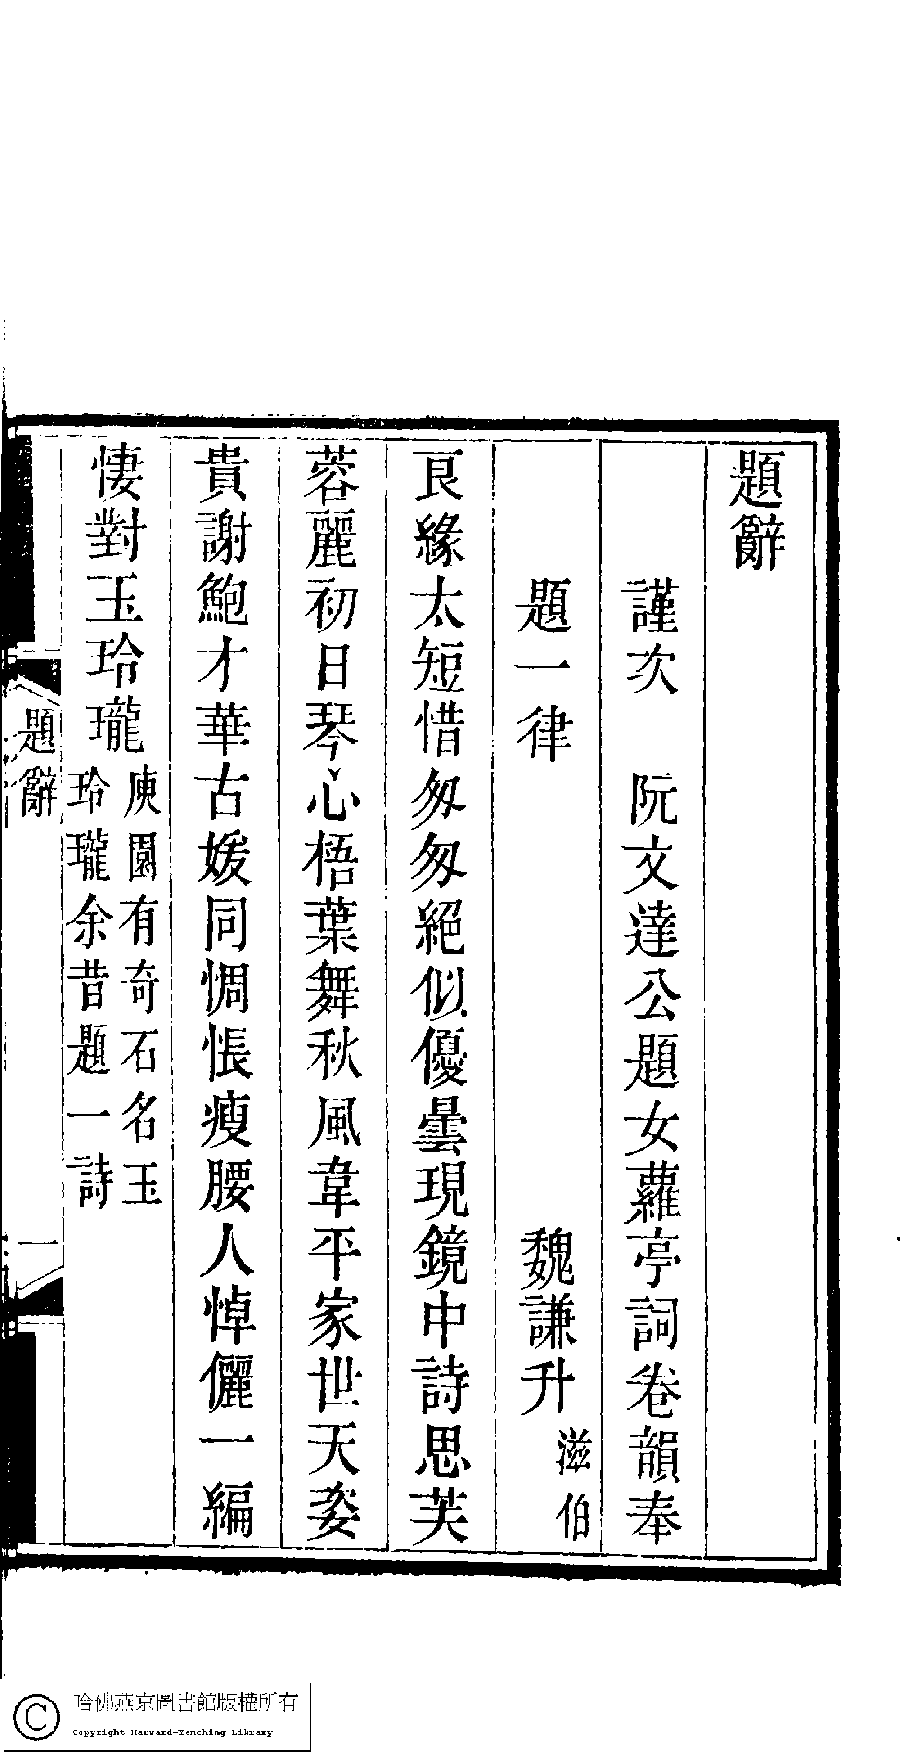 題辭
謹次 阮文達公題女蘿亭詞卷韻奉
題一律 魏謙升 滋伯
良緣太短惜匆匆絕似優曇現鏡中詩思芙
蓉麗初日琴心梧葉舞秋風韋平家世天姿
貴謝鮑才華古媛同惆悵瘦腰人悼儷一編
悽對玉玲瓏
庾園有奇石名玉
玲瓏余昔題一詩
題辭
一
哈佛燕京圖書館版權所有
Copyright Harvard-Yenching Library